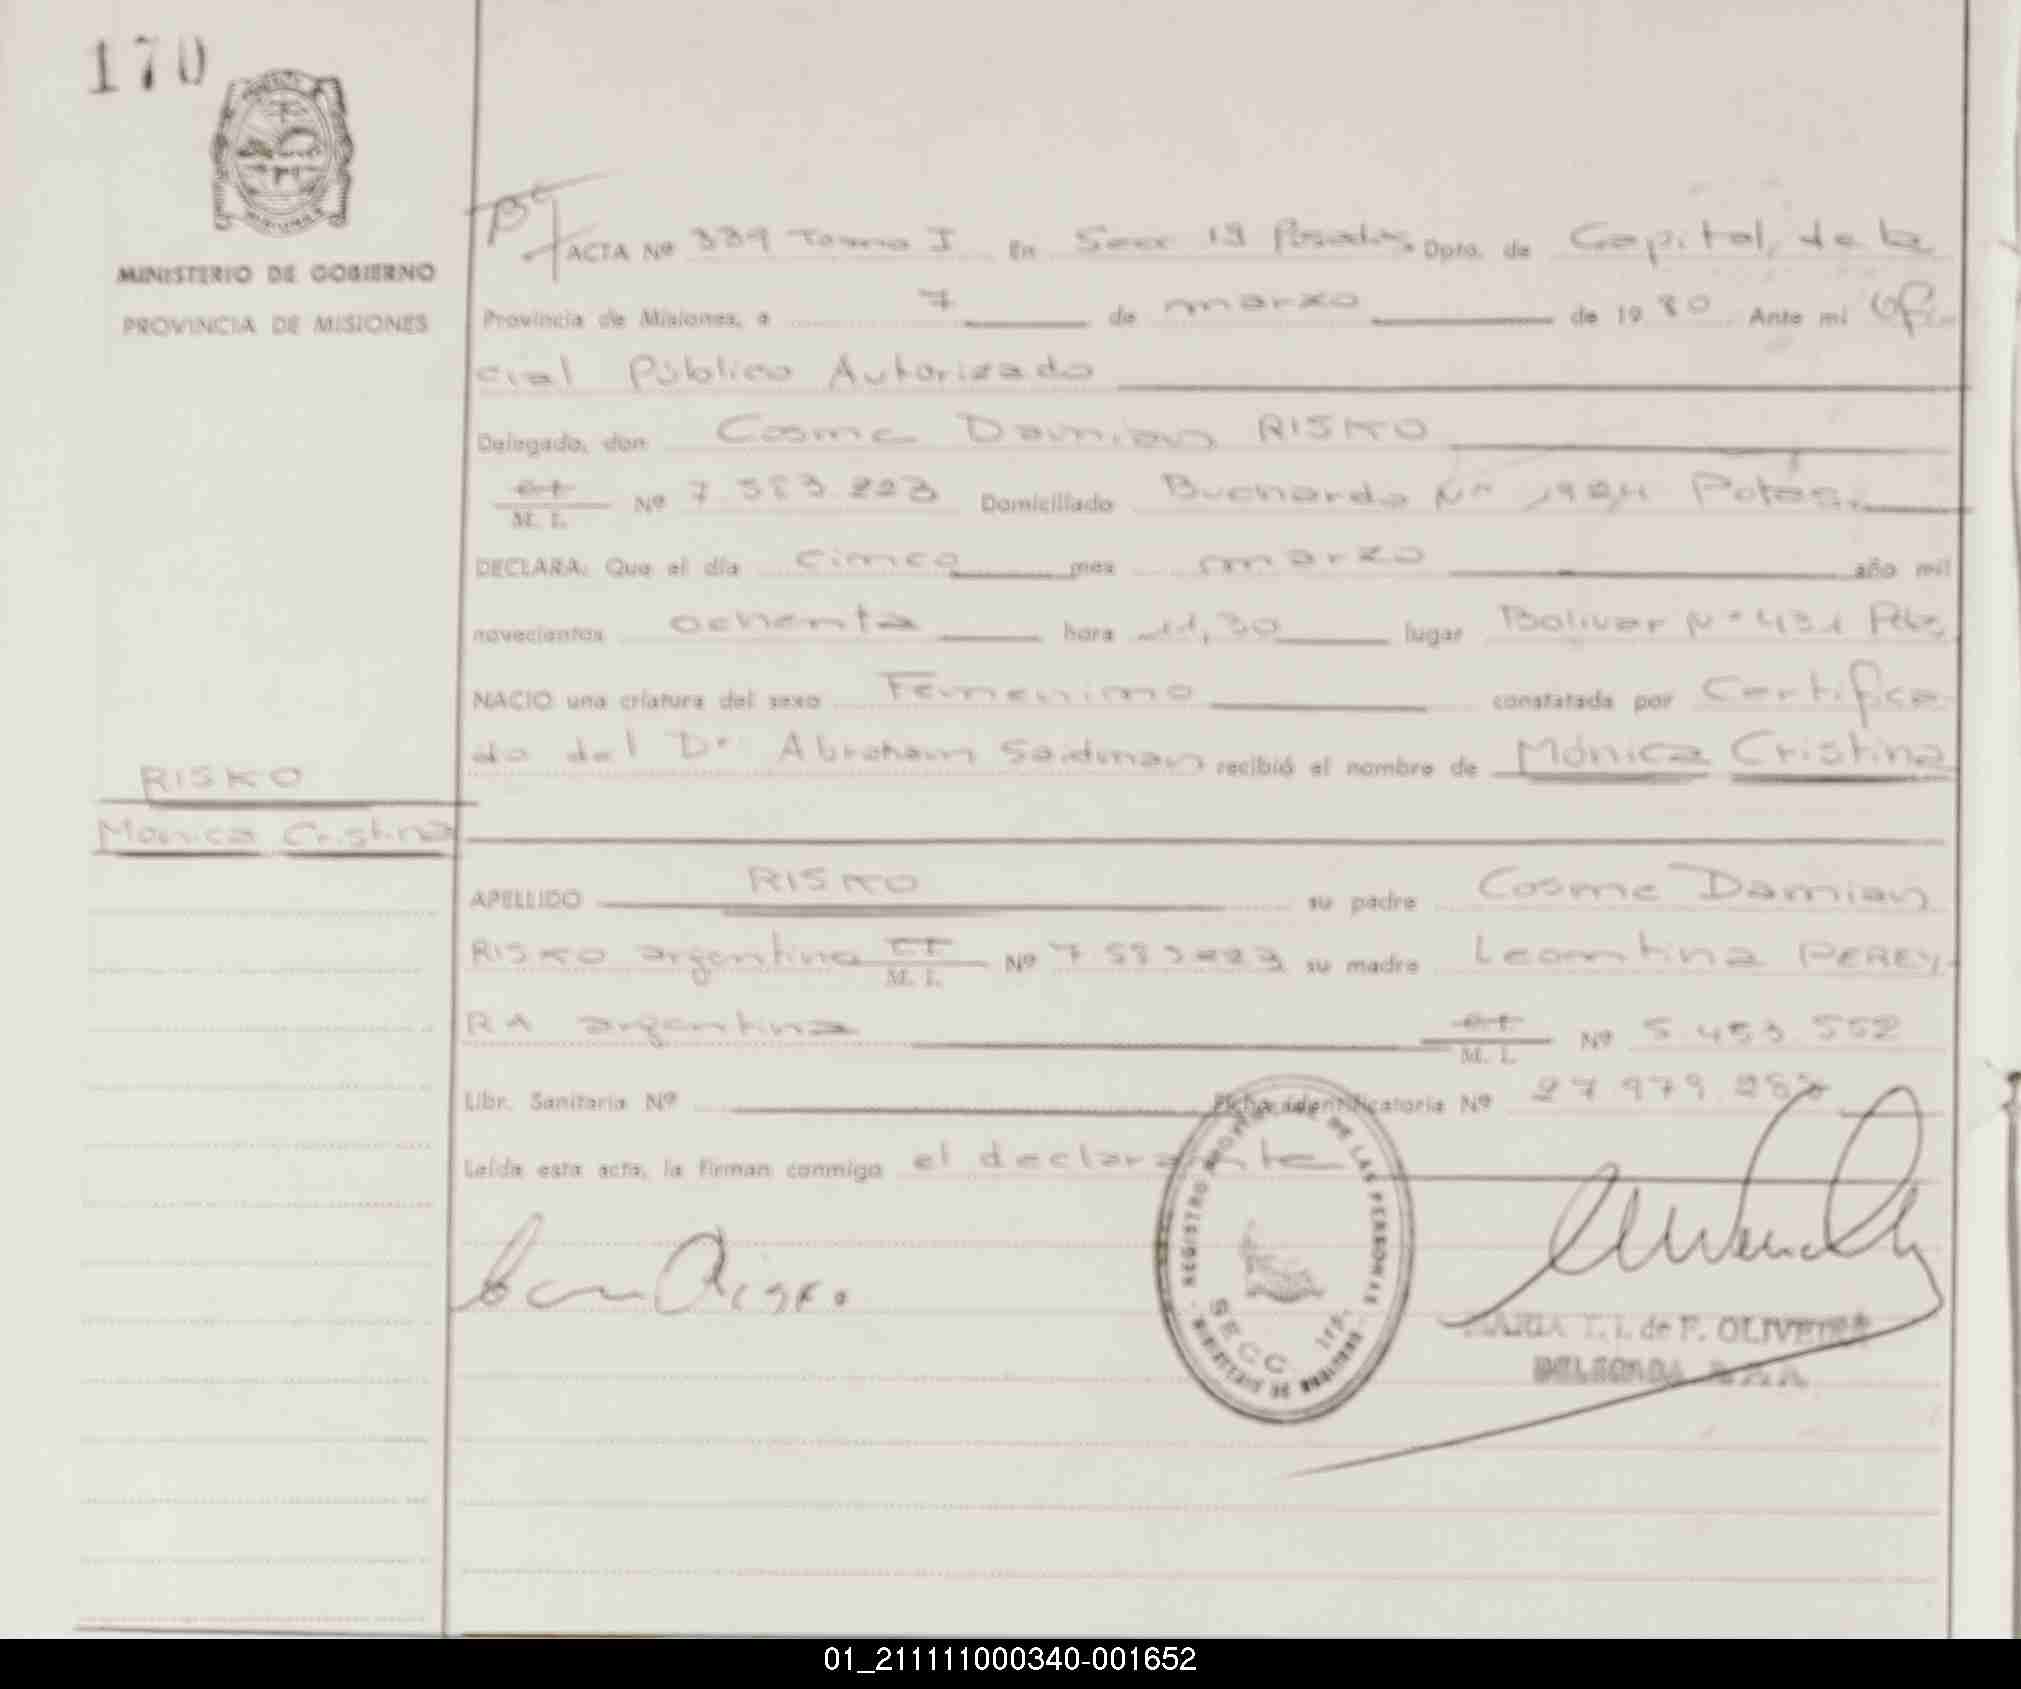 170
MINISTERIO DE GOBIERNO
PROVINCIA DE MISIONES
ACTA Nº 339 Tomo I En Secc 1ª Posadas. Dpto. de Capital, de la
Provincia de Misiones, a 7 de marzo de 1980 Ante mi Ofi-
cial Público Autorizado
Delegado, don Cosme Damian RISKO
M. I. Nº 7 583 223 Domiciliado Buchardo Nº Potas.
DECLARA: Que el día cinco mes marzo año mil
novecientos ochenta hora 11,30 lugar Bolivar Nº 431 Pdas,
NACIO una criatura del sexo Femenino constatada por Certifica-
do del Dr Abraham Saidman recibió el nombre de Mónica Cristina
RISKO
Mónica Cristina
APELLIDO RISKO su padre Cosme Damian
RISKO argentino M. I. Nº 7 583 223 su madre Leontina PEREY-
RA argentina M. I. Nº 5.453.552
Libr. Sanitaria Nº Ficha identificatoria Nº 27 979
Leída esta acta, la firman conmigo el declarante
REGISTRO DE LAS PERSONAS
SECC. 1ra.
MARIA T. I. de F. OLIVEIRA
DELEGADA
01_211111000340-001652